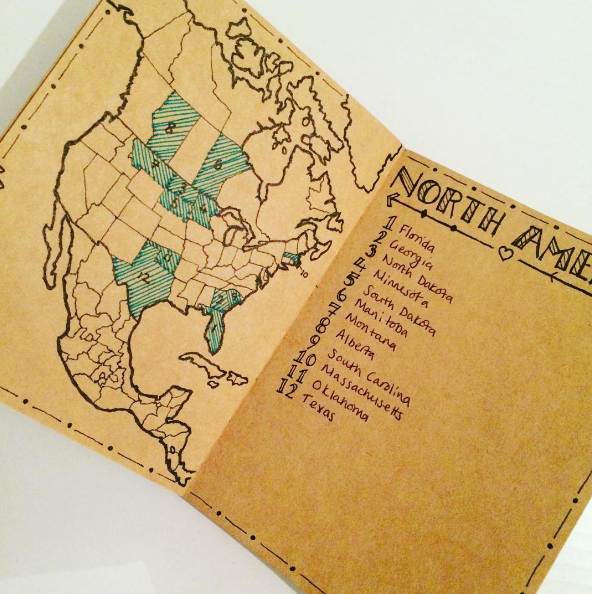 8
6
7
12
10
NORTH AME
1 Florida
2 Georgia
3 North Dakota
4 Minnesota
5 South Dakota
6 Manitoba
7 Montana
8 Alberta
9 South Carolina
10 Massachusetts
11 Oklahoma
12 Texas